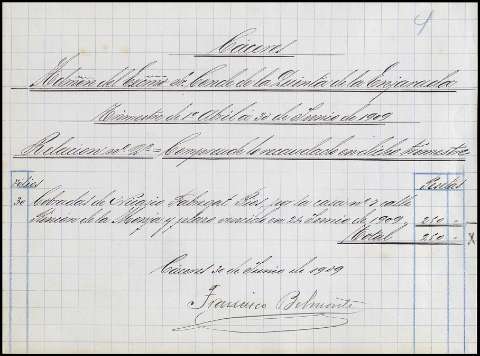 4
Cáceres
Admón del Excmo Sr. Conde de la Quinta de la Enjarada
Trimestre de 1º Abril a 30 de Junio de 1909
Relacion nº 2º = Comprende lo recaudado en dicho trimestre
Pesetas
30 Cobrados de Rios, por la casa nº 7 calle
Rincon de la Monja y plazo vencido en 24 Junio de 1909, 250 "
Total 250 "
x
Cáceres 30 de Junio de 1909
Francisco Belmonte